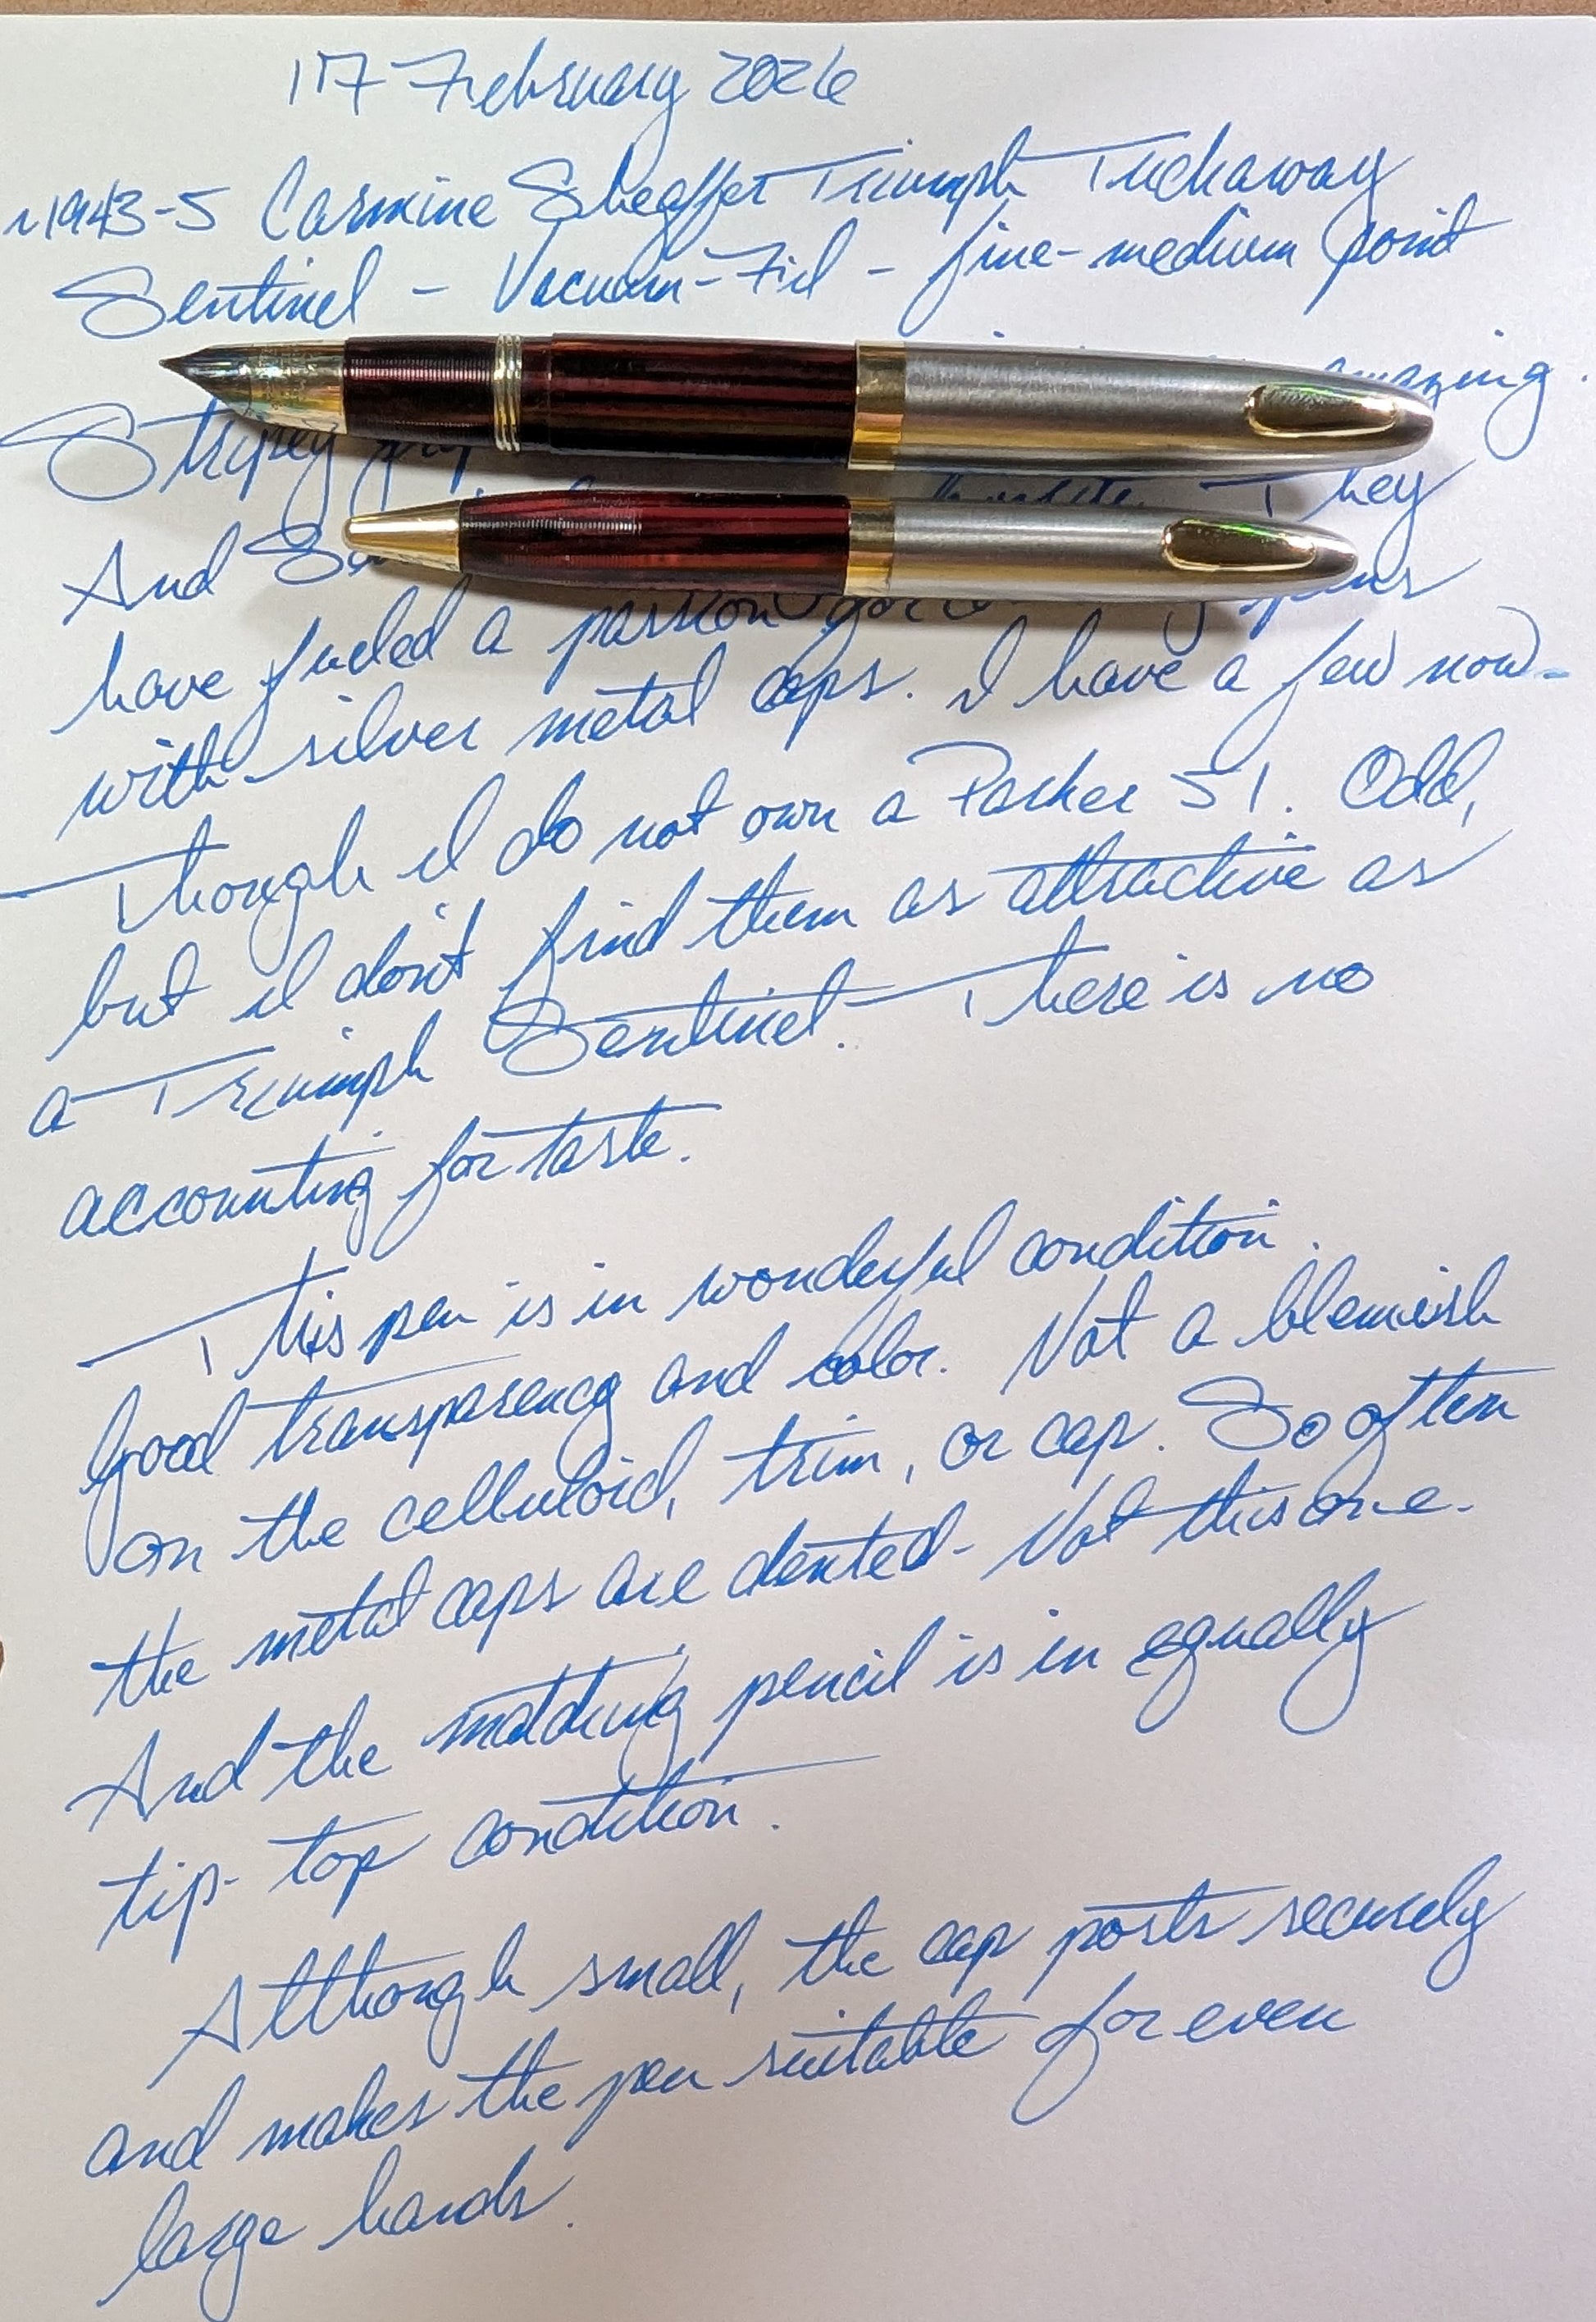 17 February 2026
~1943-5 Carmine Sheaffer Triumph Tuckaway
Sentinel - Vacuum-Fil - fine-medium point
Stripey amazing.
And They
have fueled a passion for pens
with silver metal caps. I have a few now -
Though I do not own a Parker 51. Odd,
but I don't find them as attractive as
a Triumph Sentinel. There is no
accounting for taste.
This pen is in wonderful condition.
Good transparency and color. Not a blemish
on the celluloid, trim, or cap. So often
the metal caps are dented - Not this one.
And the matching pencil is in equally
tip-top condition.
Although small, the cap posts securely
and makes the pen suitable for even
large hands.